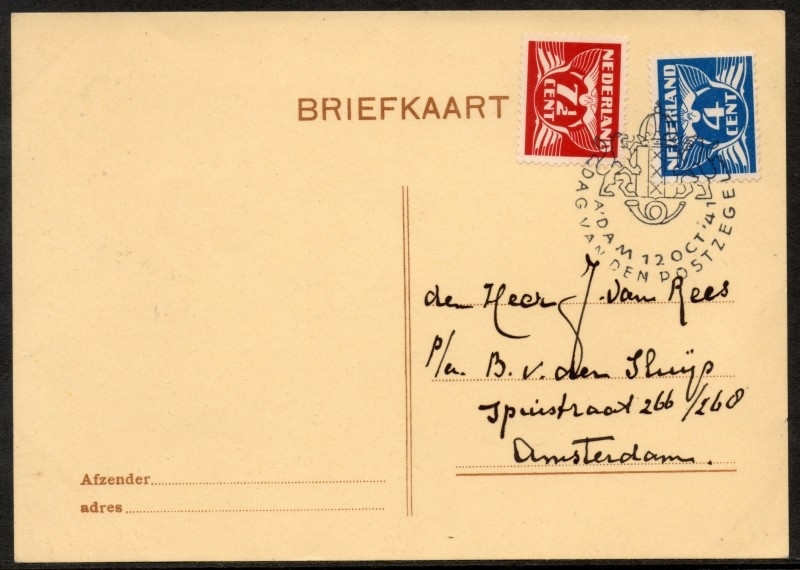 BRIEFKAART
NEDERLAND
7½
CENT
NEDERLAND
4
CENT
A'DAM 12 OCT '41
DAG VAN DEN POSTZEGEL
den Heer J. van Rees
p/a. B. v. der Sluijs
Spuistraat 266/268
Amsterdam.
Afzender
adres